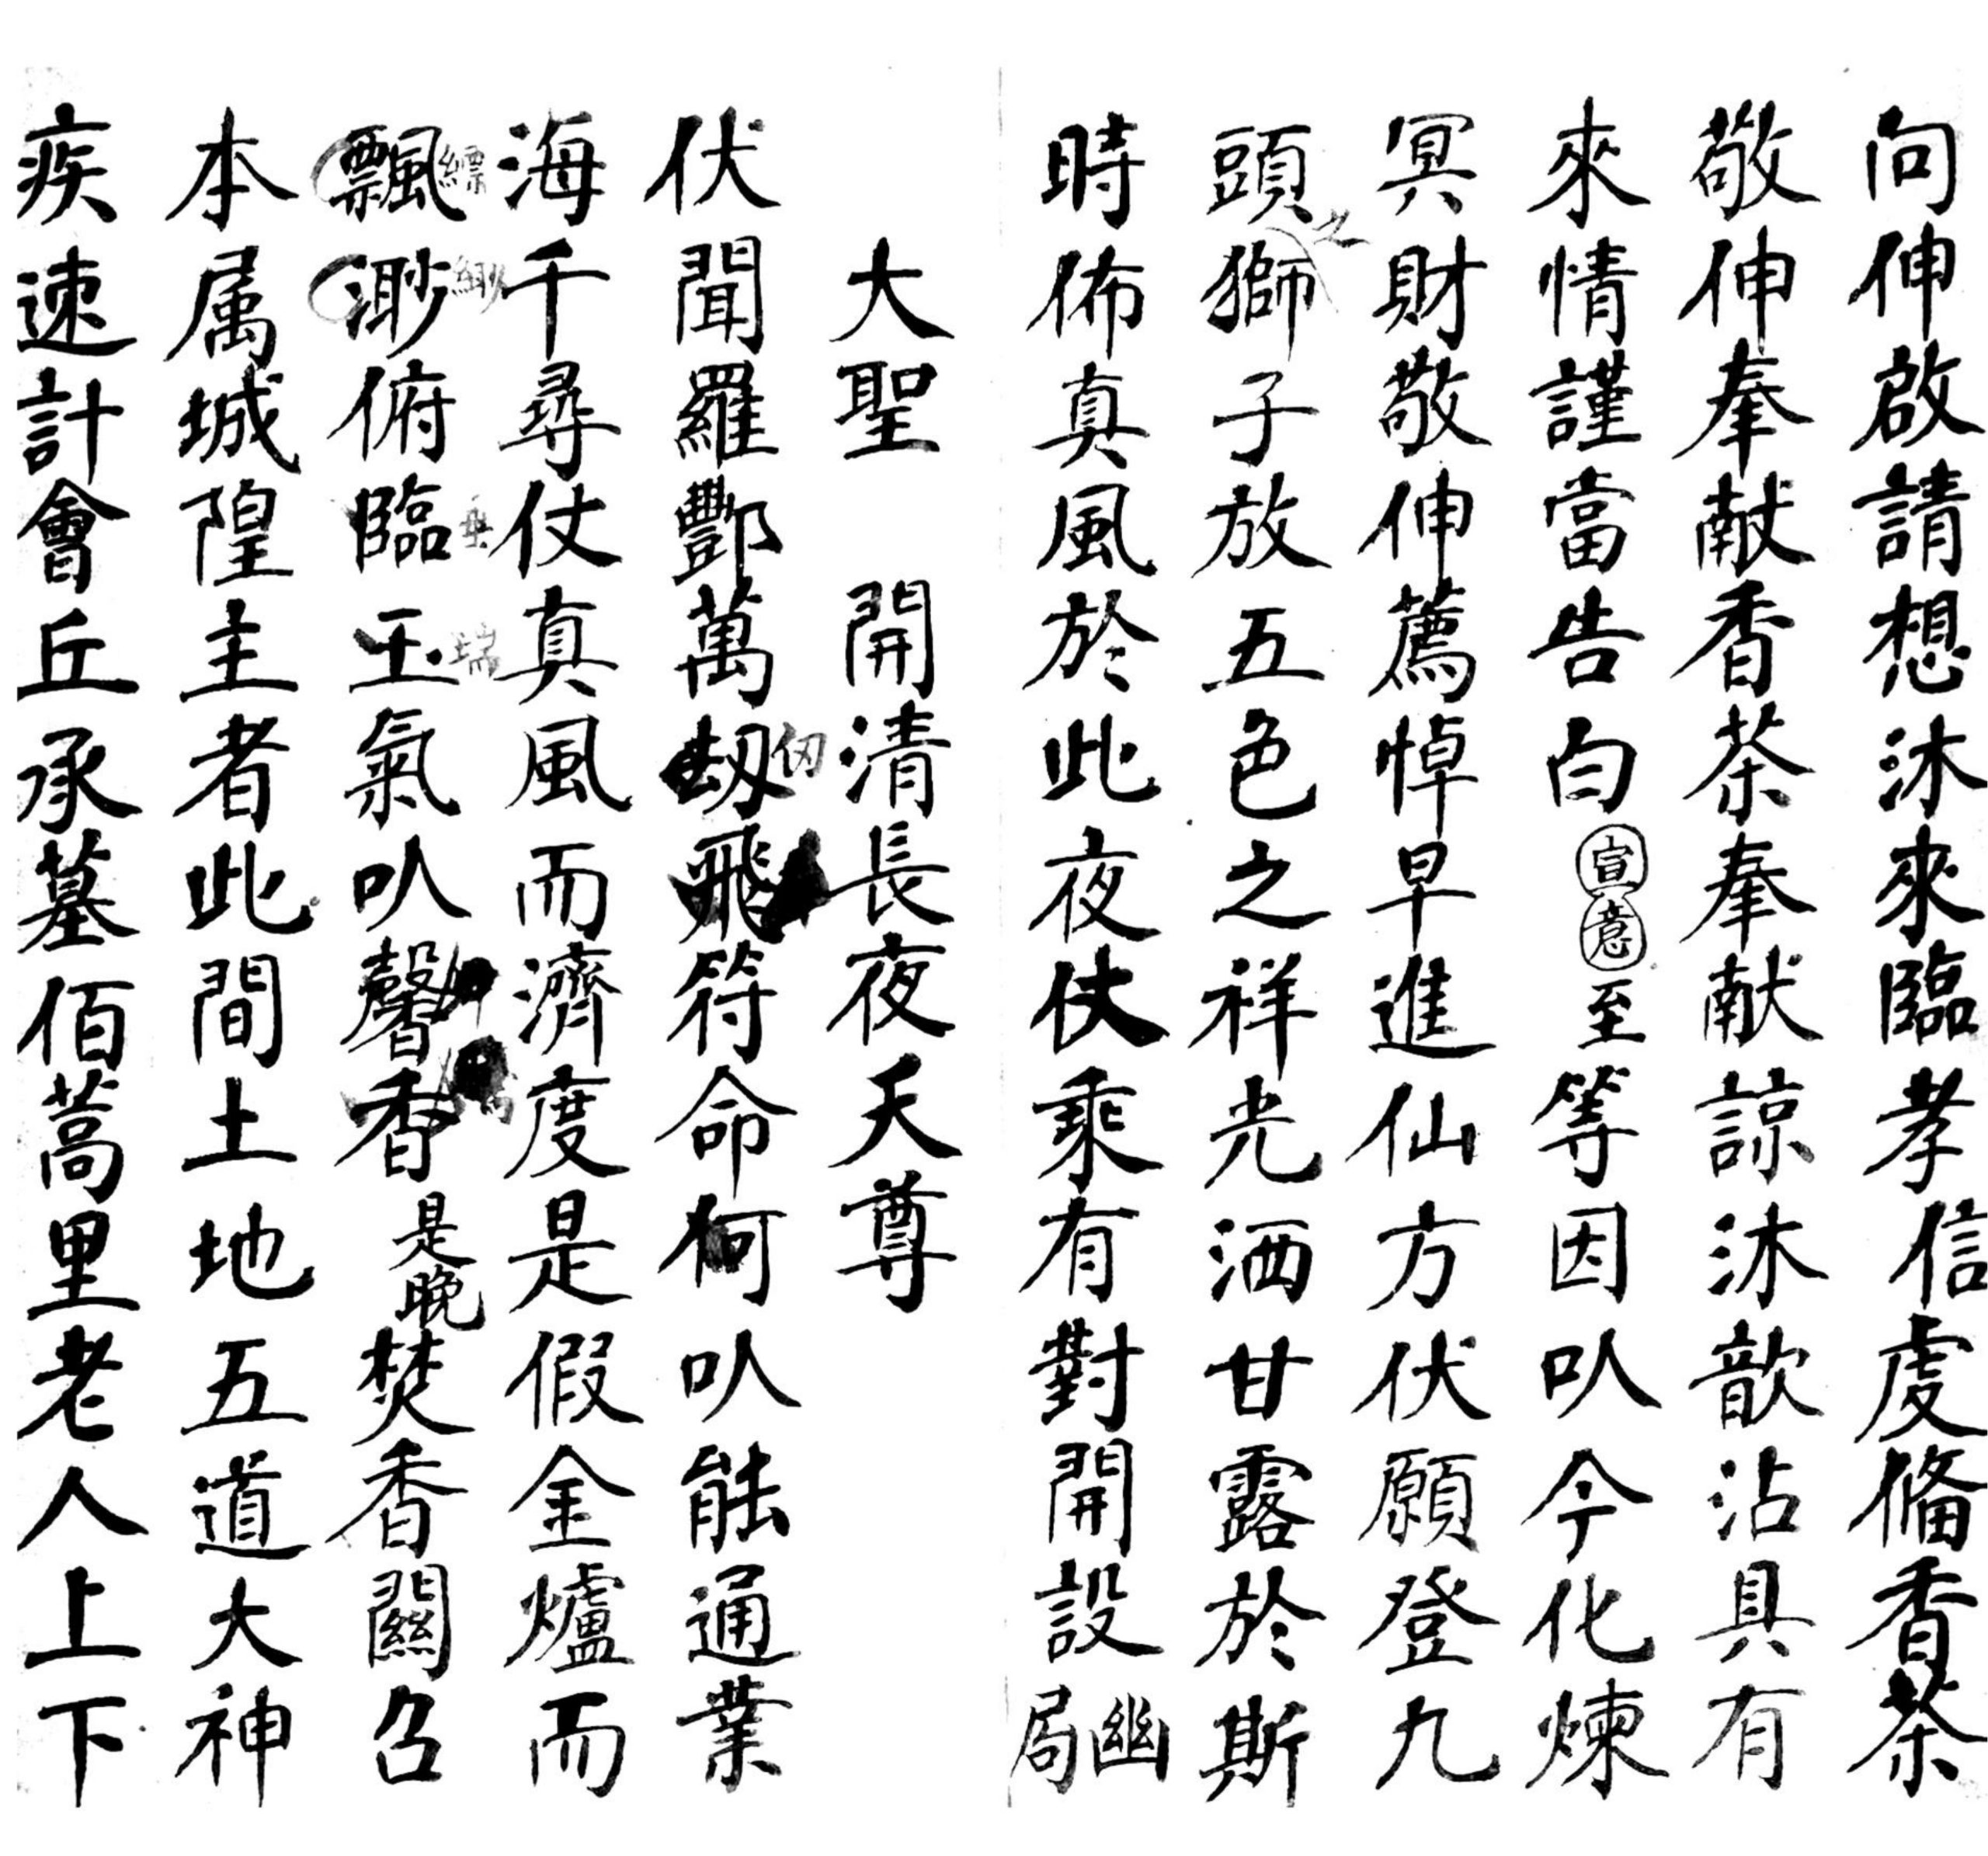 向伸啟請想沐來臨孝信虔俻香茶
敬伸奉献香茶奉献諒沐歆沾具有
來情謹當告白宣意至等因㕥今化煉
冥財敬伸薦悼早進仙方伏願登九
頭之獅子放五色之祥光洒甘露於斯
時佈真風於此夜仗乘有對開設幽局
大聖　開清長夜天尊
伏聞羅酆萬刼仞飛符命何㕥能通業
海千尋仗真風而濟度是假金爐而
飄縹渺緲俯臨垂玉瑞氣㕥馨香是晚焚香關召
本属城隍主者此間土地五道大神
疾速計會丘承墓佰蒿里老人上下